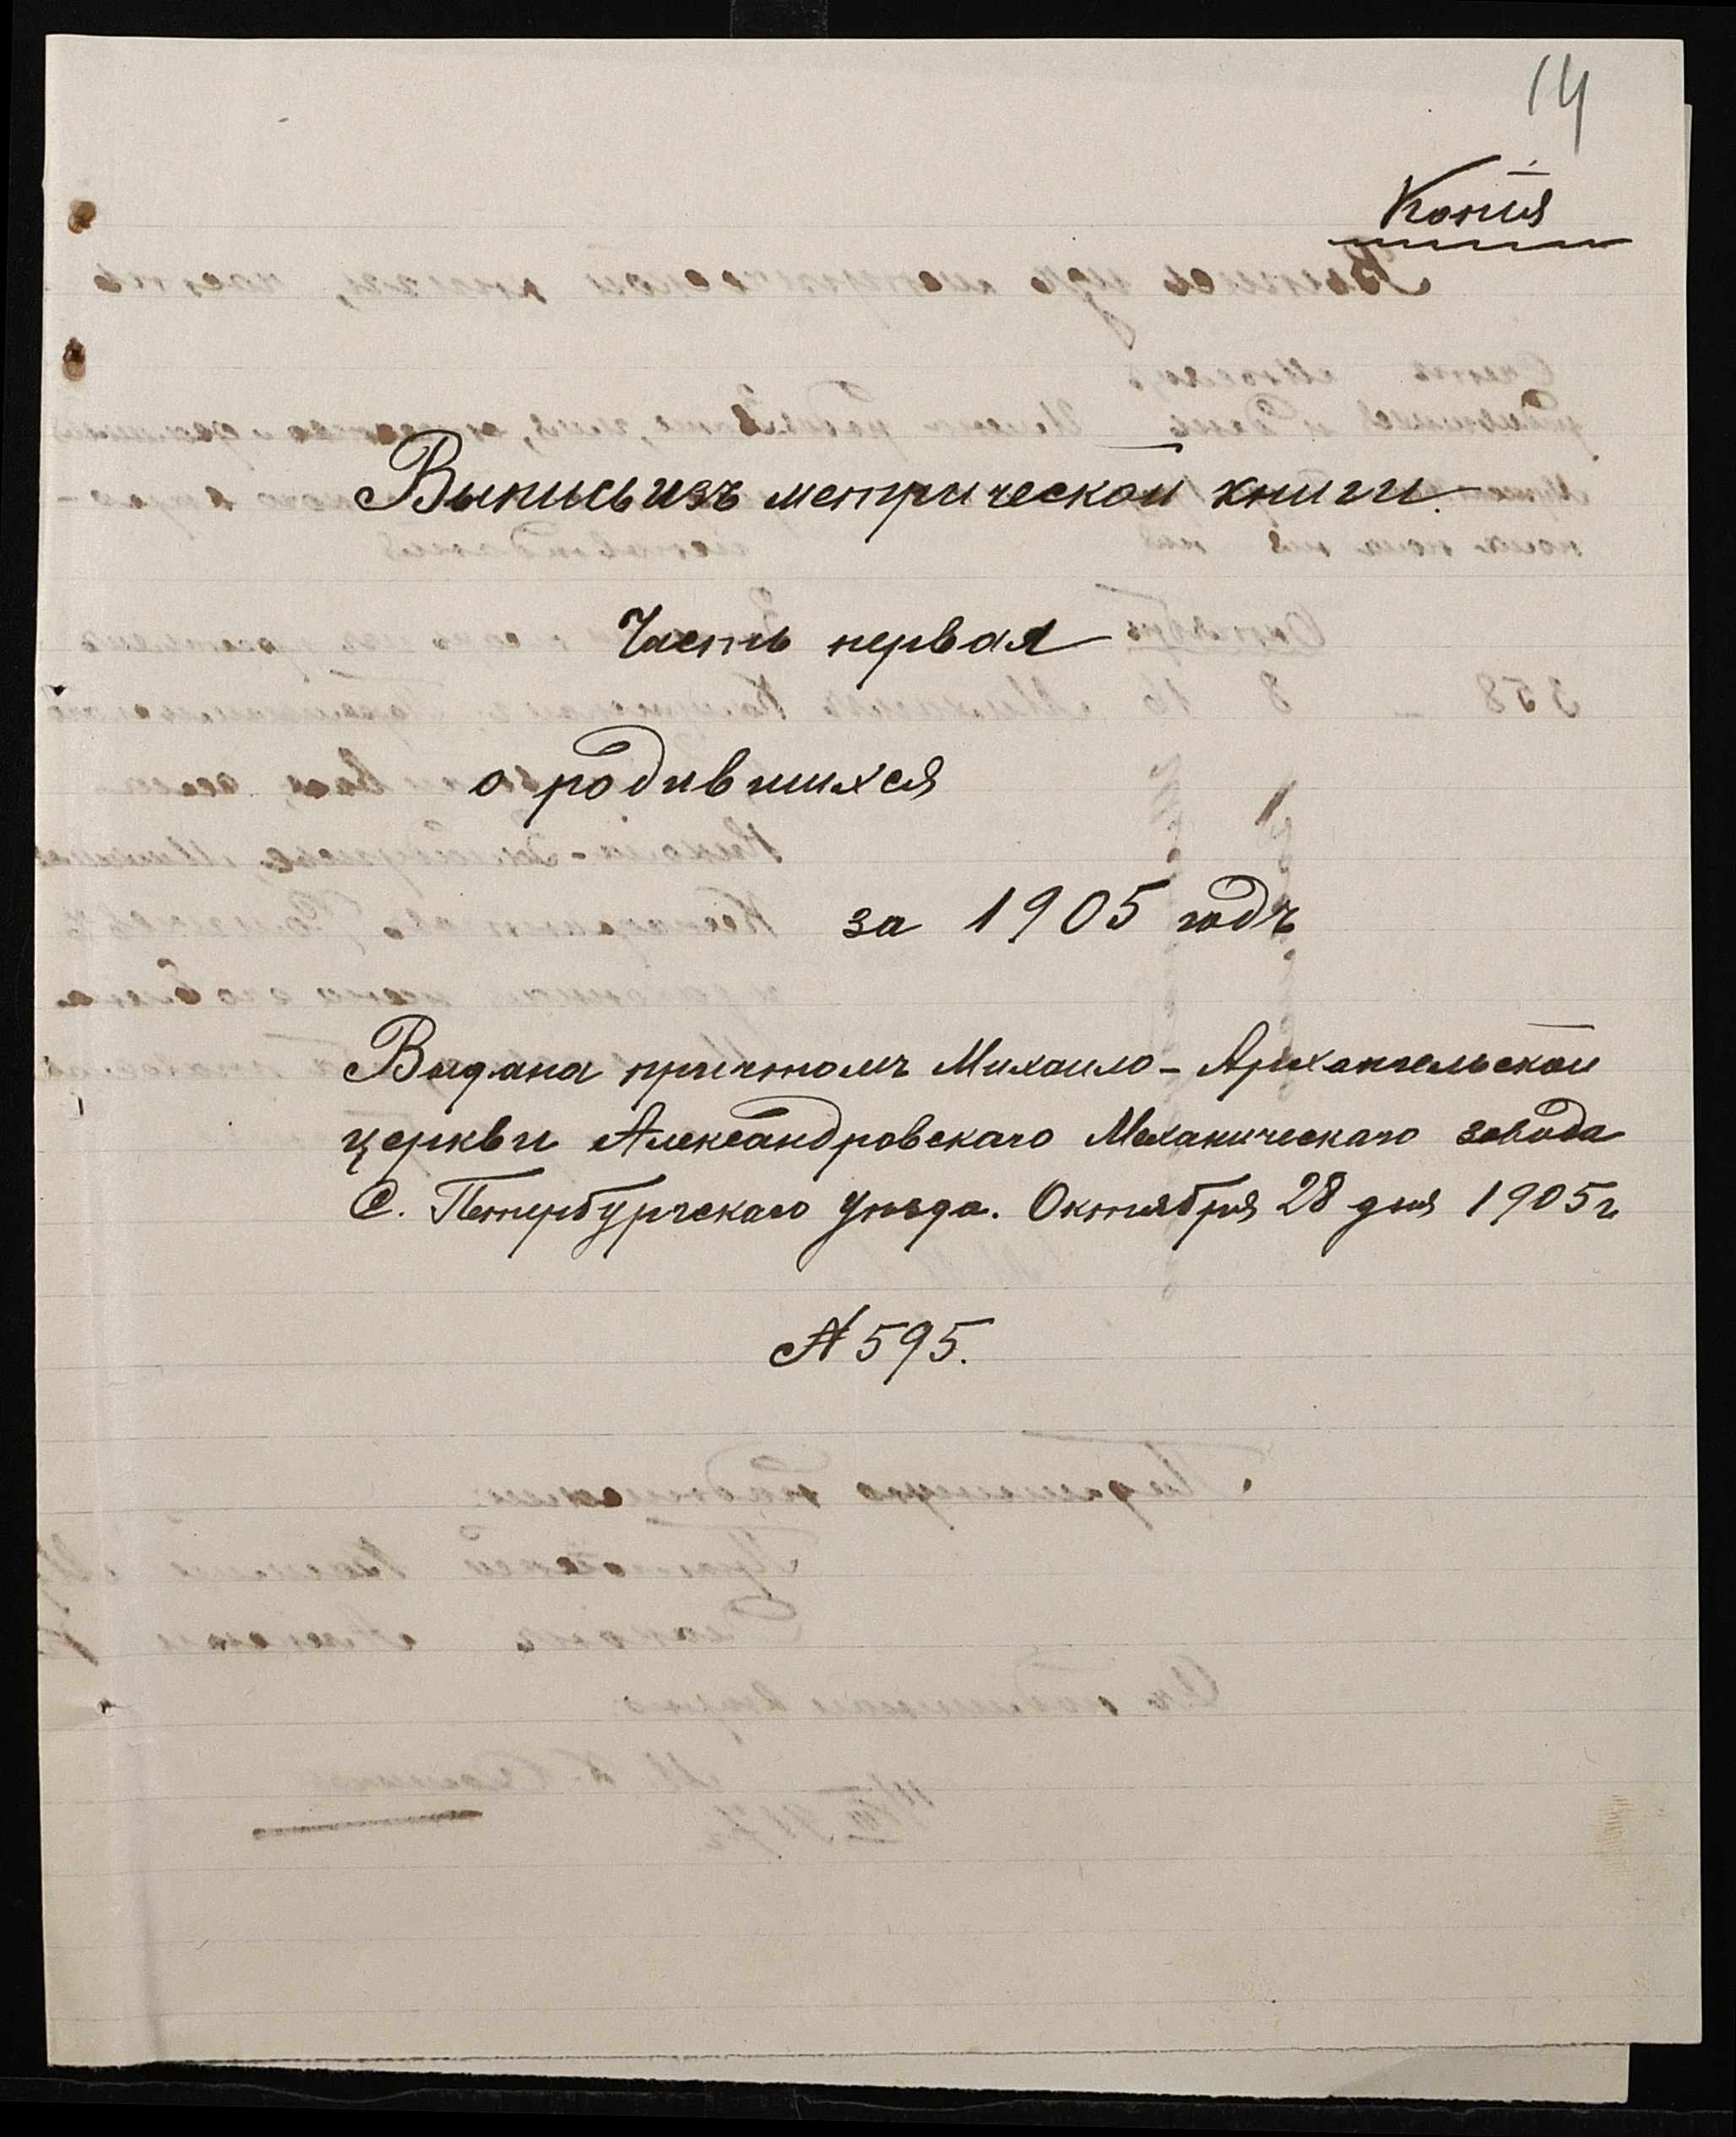 14
Копія
Выпись изъ метрической книги.
Часть первая
о родившихся
за 1905 годъ
Выдана причтомъ Михаило-Архангельской
церкви Александровскаго Механическаго завода
С. Петербургскаго уѣзда. Октября 28 дня 1905 г.
№ 595.